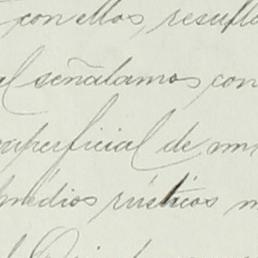 con ellos, result
al señalamos con
superficial de un
medios rústicos